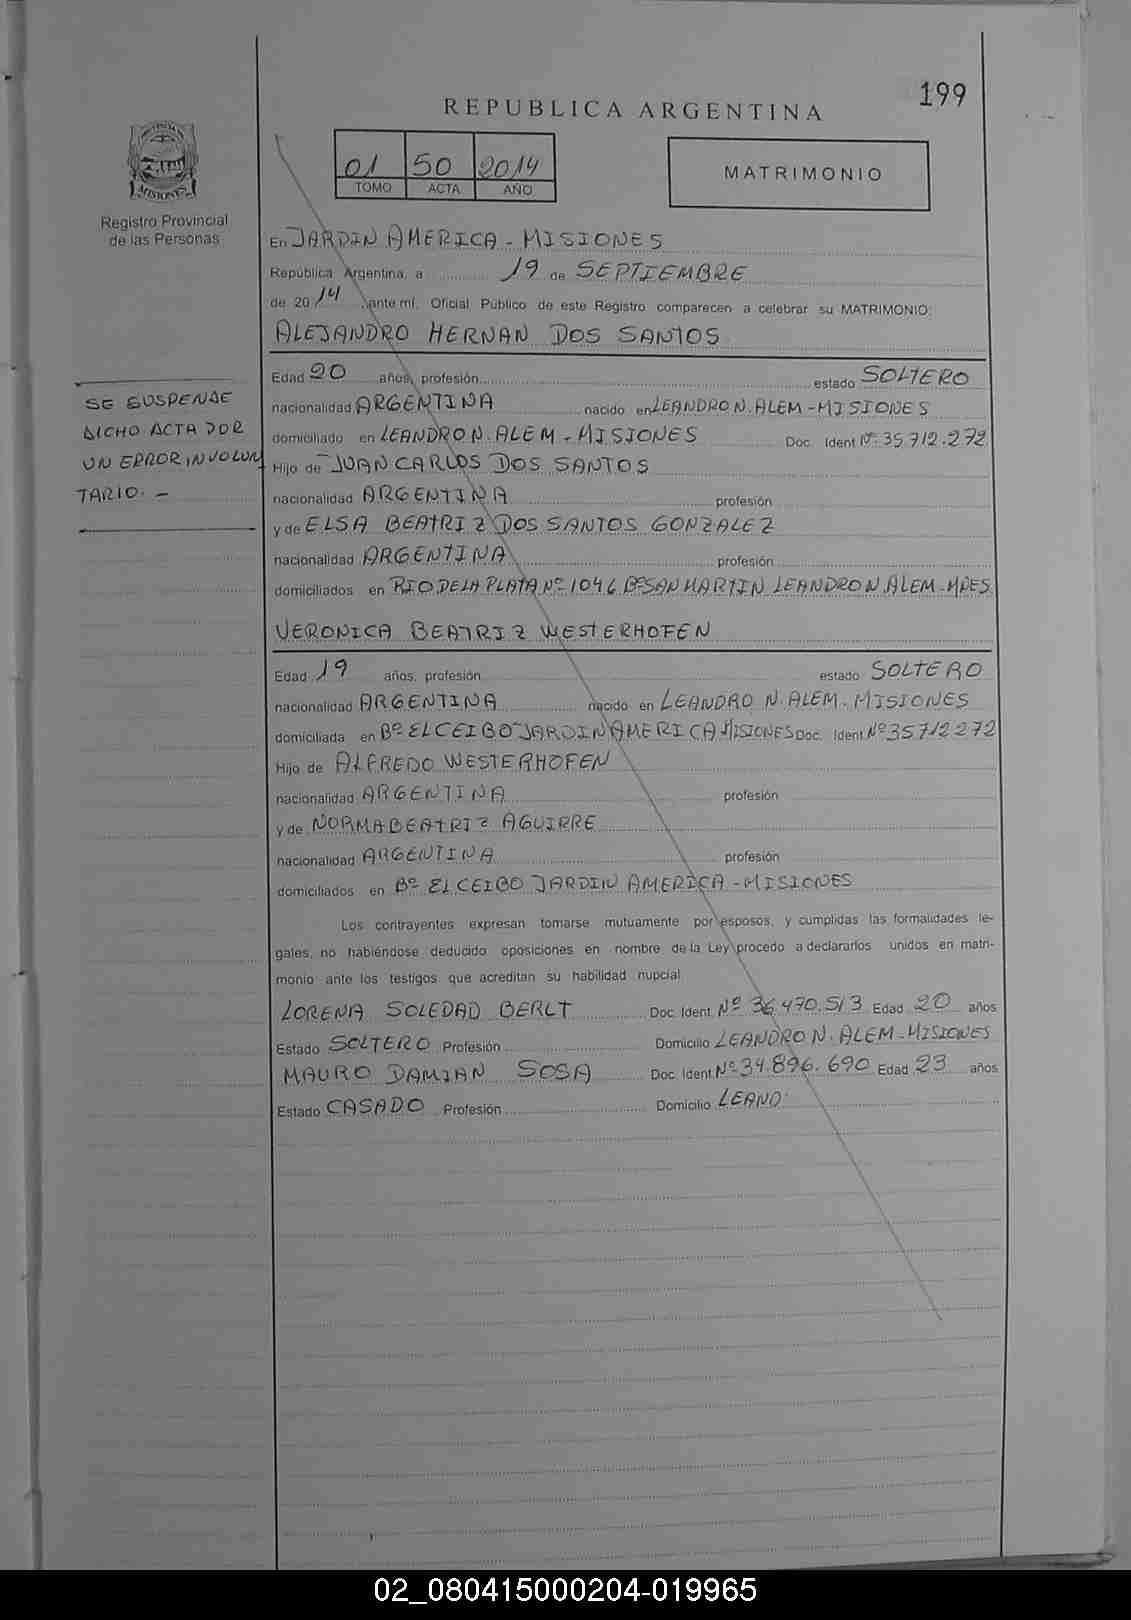 199
REPUBLICA ARGENTINA
01 50 2014
TOMO ACTA AÑO
MATRIMONIO
MISIONES
Registro Provincial
de las Personas
En JARDIN AMERICA - MISIONES
República Argentina, a 19 de SEPTIEMBRE
de 20 14, ante mí, Oficial Público de este Registro comparecen a celebrar su MATRIMONIO:
ALEJANDRO HERNAN DOS SANTOS
Edad 20 años, profesión estado SOLTERO
nacionalidad ARGENTINA nacido en LEANDRO N. ALEM - MISIONES
domiciliado en LEANDRO N. ALEM - MISIONES Doc. Ident Nº 35.712.272
Hijo de JUAN CARLOS DOS SANTOS
nacionalidad ARGENTINA profesión
y de ELSA BEATRIZ DOS SANTOS GONZALEZ
nacionalidad ARGENTINA profesión
domiciliados en RIO DE LA PLATA Nº 1046 Bº SAN MARTIN LEANDRO N ALEM - MNES
SE SUSPENDE
DICHO ACTA POR
UN ERROR INVOLUN
TARIO. -
VERONICA BEATRIZ WESTERHOFEN
Edad 19 años, profesión estado SOLTERO
nacionalidad ARGENTINA nacido en LEANDRO N. ALEM - MISIONES
domiciliada en Bº EL CEIBO JARDIN AMERICA MISIONES Doc. Ident. Nº 35712272
Hijo de ALFREDO WESTERHOFEN
nacionalidad ARGENTINA profesión
y de NORMA BEATRIZ AGUIRRE
nacionalidad ARGENTINA profesión
domiciliados en Bº EL CEIBO JARDIN AMERICA - MISIONES
Los contrayentes expresan tomarse mutuamente por esposos, y cumplidas las formalidades le-
gales, no habiéndose deducido oposiciones en nombre de la Ley procedo a declararlos unidos en matri-
monio ante los testigos que acreditan su habilidad nupcial
LORENA SOLEDAD BERLT Doc. Ident. Nº 36.470.513 Edad 20 años
Estado SOLTERO Profesión Domicilio LEANDRO N. ALEM - MISIONES
MAURO DAMIAN SOSA Doc. Ident. Nº 34.896.690 Edad 23 años
Estado CASADO Profesión Domicilio LEAND
02_080415000204-019965